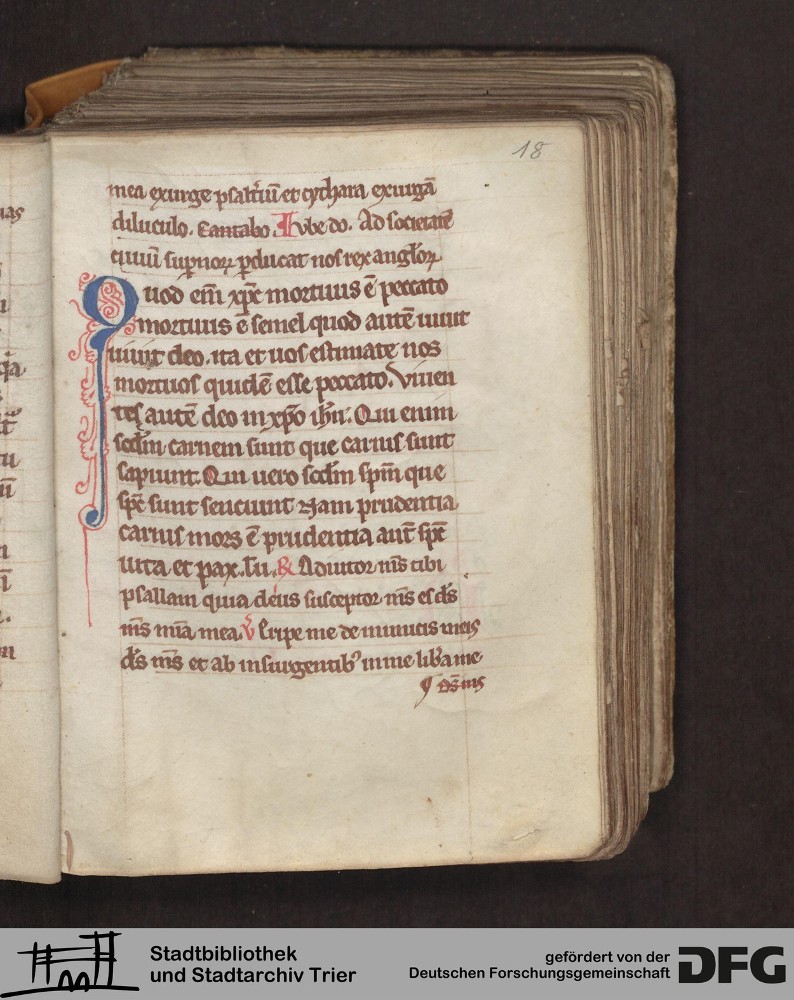 18
mea exurge psalt̾iū et cythara exurgā
diluculo. Cantabo. Iube do. Ad societatē
ciuiū supnoꝝ ꝑducat nos rex angl̾oꝝ
Quod em̄ xp̄c mortuus ē peccato
mortuus ē semel quod autē uiuit
uiuit deo. ita et uos estimate nos
mortuos quidē esse peccato. Viuen
tes autē deo in xp̄o ih̄u. Qui enim
scd̄m carnem sunt que carnis sunt
sapiunt. Qui uero scd̄m sp̄m que
sp̄c sunt senciunt Nam prudentia
carnis mors ē prudentia aut̄ sp̄c
uita et pax. Tu. ℞ Adiutor m̄s tibi
psallam quia deus susceptor m̄s es d̄s
m̄s mīa mea. ℣ Eripe me de inimicis meis
d̄s m̄s et ab insurgentibꝰ in me lib̾a me
¶ d̄s m̄s
Stadtbibliothek
und Stadtarchiv Trier
gefördert von der
Deutschen Forschungsgemeinschaft
DFG